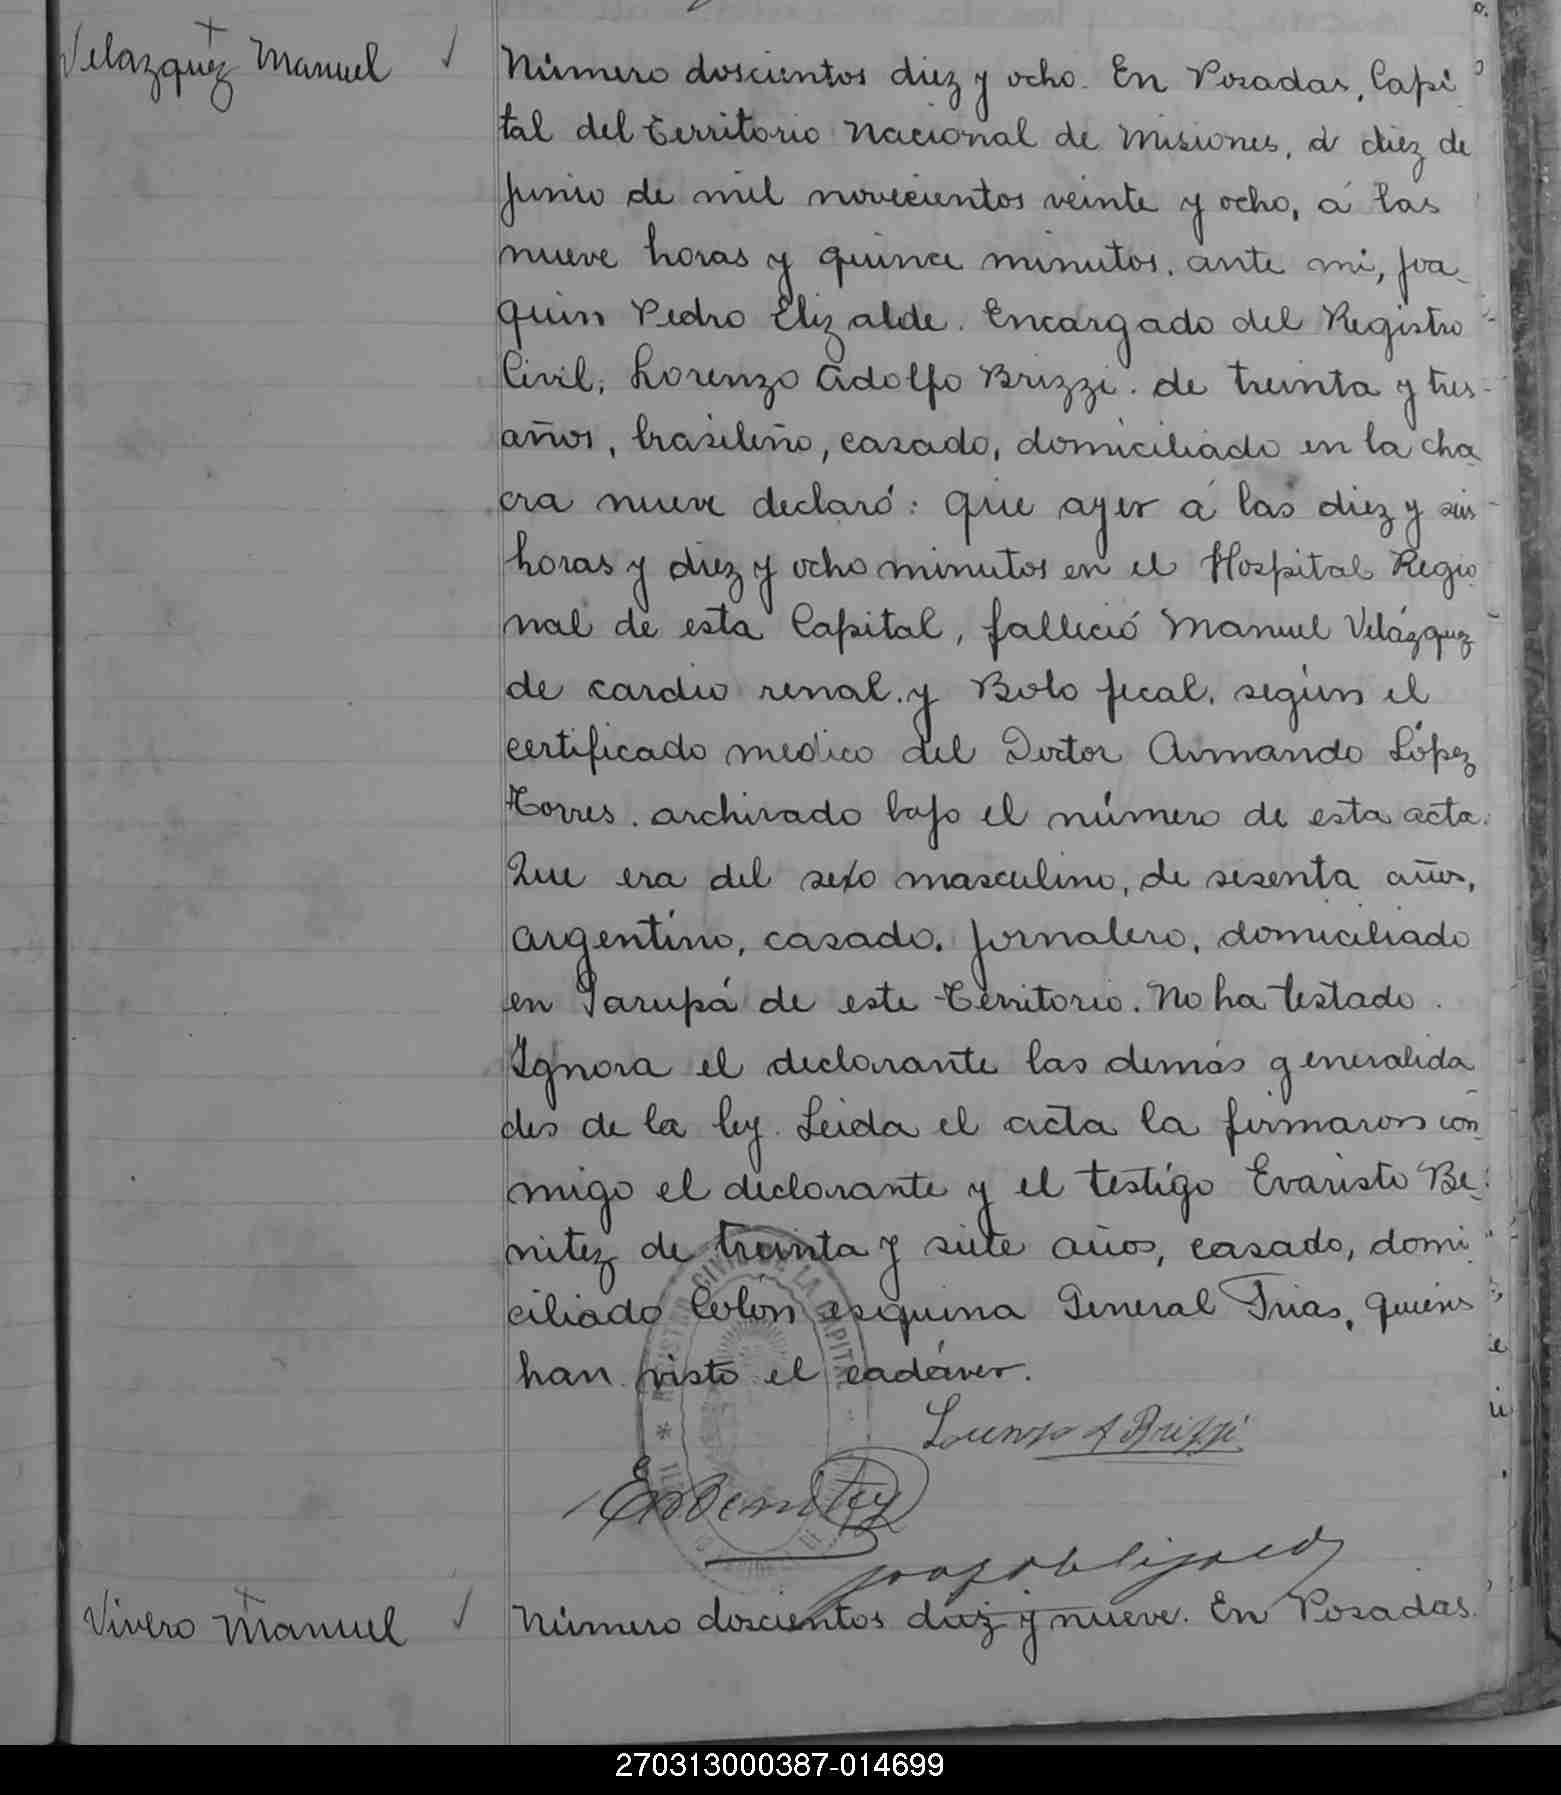 Velazquez Manuel
Número doscientos diez y ocho. En Posadas, Capi
tal del Territorio Nacional de Misiones, á diez de
Junio de mil novecientos veinte y ocho, á las
nueve horas y quince minutos, ante mi, Joa-
quin Pedro Elizalde. Encargado del Registro
Civil, Lorenzo Adolfo Brizzi. de treinta y tres
años, brasileño, casado, domiciliado en la cha
cra nueve declaró: Que ayer á las diez y seis
horas y diez y ocho minutos en el Hospital Regio
nal de esta Capital, falleció Manuel Velázquez
de cardio renal y Bolo fecal, según el
certificado medico del Doctor Armando López
Torres. archivado bajo el número de esta acta.
Que era del sexo masculino, de sesenta años,
argentino, casado, jornalero, domiciliado
en Garupá de este Territorio. No ha testado.
Ignora el declarante las demás generalida
des de la ley. Leida el acta la firmaron con
migo el declarante y el testigo Evaristo Be-
nitez de treinta y siete años, casado, domi
ciliado Colón esquina General Frias, quienes
han visto el cadáver.
Lorenzo A Brizzi
Ev Benitez
Vivero Manuel
Número doscientos diez y nueve. En Posadas
270313000387-014699